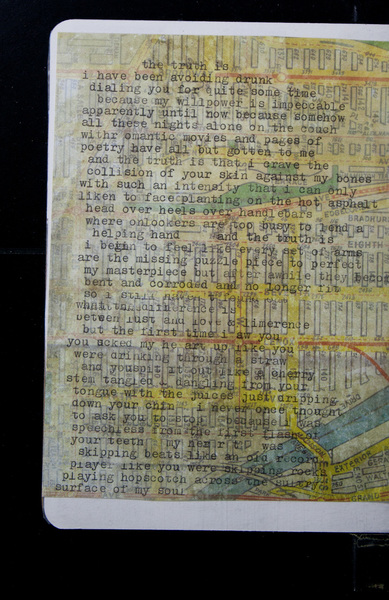 the truth is
i have been avoiding drunk
dialing you for quite some time
because my willpower is impeccable
apparently until now because somehow
all these nights alone on the couch
withr omantic movies and pages of
poetry have all but gotten to me
and the truth is that i crave the
collision of your skin against my bones
with such an intensity that i can only
liken to faceplanting on the hot asphalt
head over heels over handlebars
where onlookers are too busy to lend a
helping hand and the truth is
i begin to feel like every set of arms
are the missing puzzle piece to perfect
my masterpiece but after awhile they become
bent and corroded and no longer fit
so i still
difference is
between lust and love & limerence
but the first time i saw you
you sucked my heart up like you
were drinking through a straw
and youspit it out like a cherry
stem tangled & dangling from your
tongue with the juices just dripping
down your chin i never once thought
to ask you to stop because i was
speechless from the first flash of
your teeth my heart was
skipping beats like an old record
player like you were skipping rocks
playing hopscotch across the
surface of my soul
EIGHTH
EXTERIOR